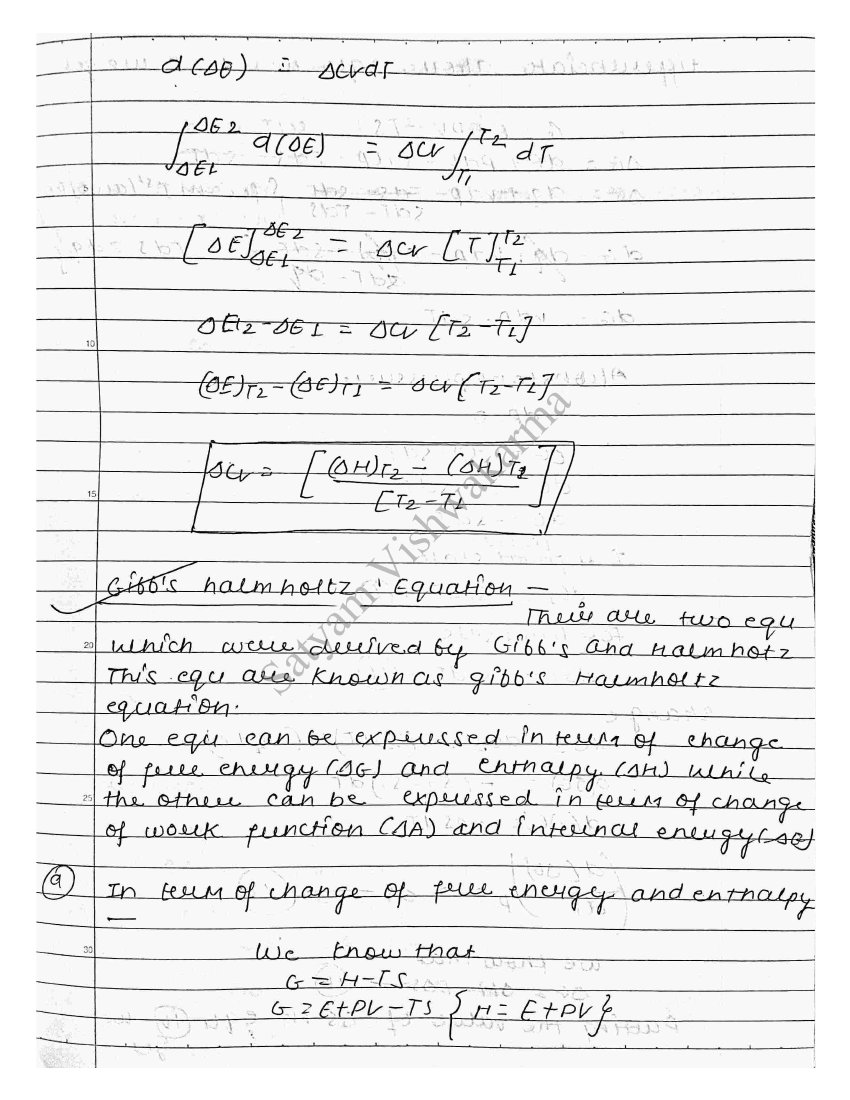 d(ΔE) = ΔCvdT
∫ΔE1^ΔE2 d(ΔE) = ΔCv ∫T1^T2 dT
[ΔE]ΔE1^ΔE2 = ΔCv [T]T1^T2
ΔE2-ΔE1 = ΔCv [T2-T1]
(ΔE)T2-(ΔE)T1 = ΔCv[T2-T1]
ΔCv = [(ΔH)T2 - (ΔH)T1 / [T2-T1]
Gibb's halmholtz' Equation —
Their are two equ
which were derived by Gibb's and Halmhotz
This equ are known as gibb's Halmholtz
equation.
One equ can be expressed in term of change
of free energy (ΔG) and enthalpy (ΔH) while
the other can be expressed in term of change
of work function (ΔA) and internal energy(ΔE)
(a) In term of change of free energy and enthalpy
—
We know that
G = H-TS
G = E+PV-TS {H = E+PV}
Satyam Vishwakarma
5
10
15
20
25
30